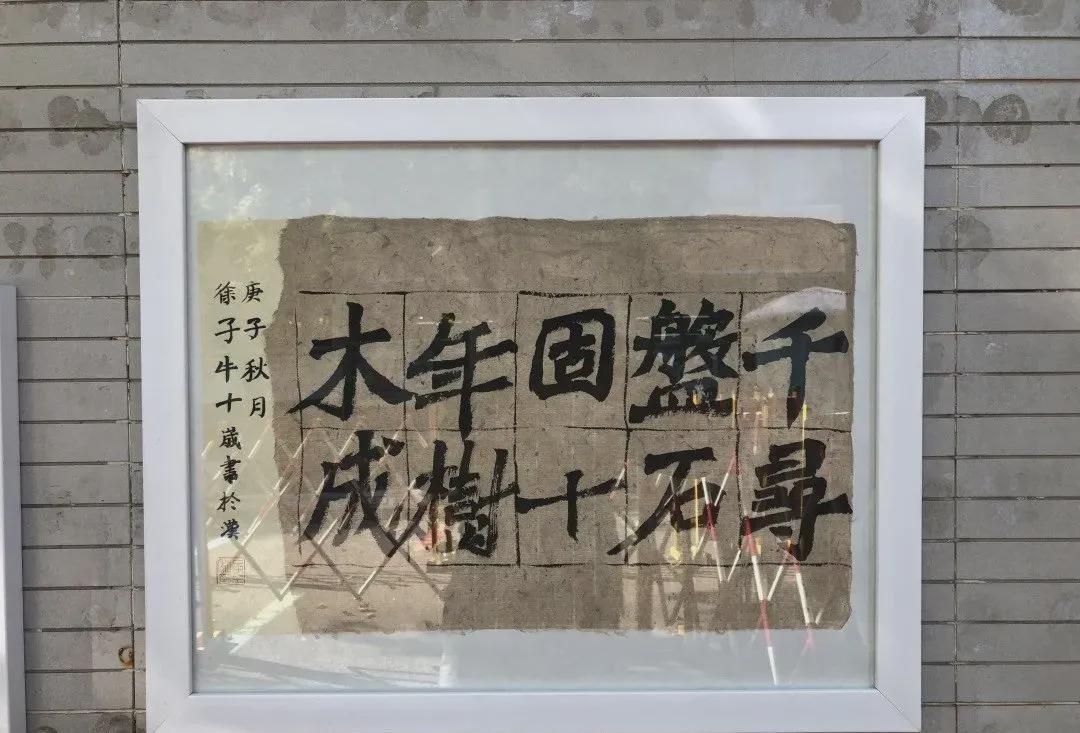 千尋
盤石
固十
年樹
木成
庚子秋月
徐子牛十歲書於漢